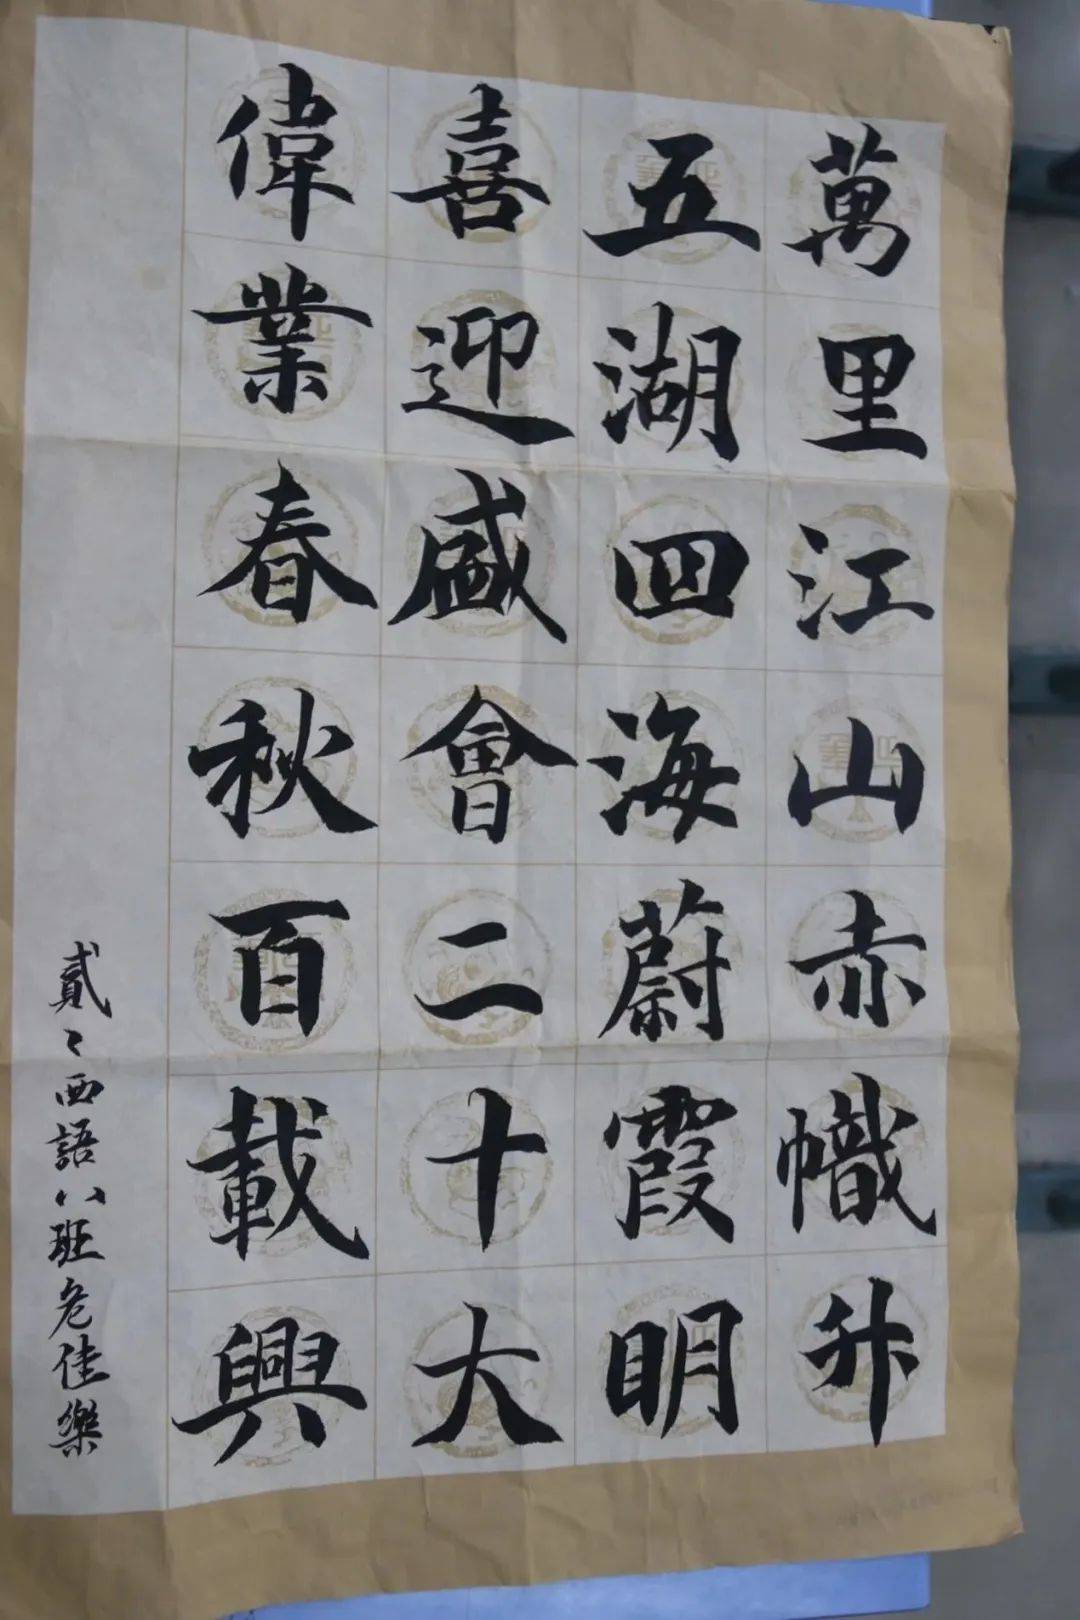 萬里江山赤幟升
五湖四海蔚霞明
喜迎盛會二十大
偉業春秋百載興
貳〻西語八班危佳樂